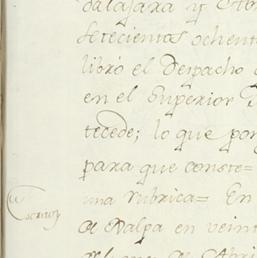 dalajara y Abr
setecientos ochent
libró el Despacho
en el Superior
tecede; lo que pon
para que conste=
una rubrica= En
de Nalpa en veint
Escrito